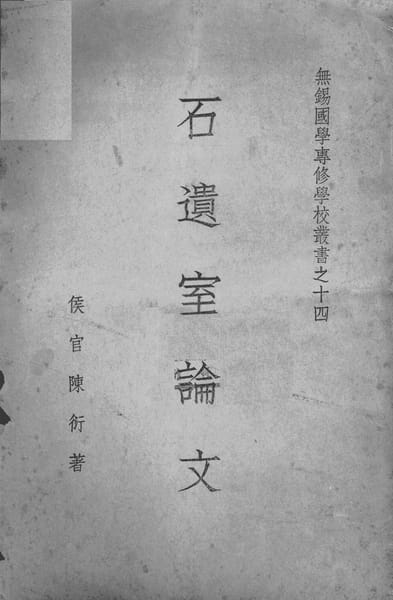 無錫國學專修學校叢書之十四
石遺室論文
侯官陳衍著